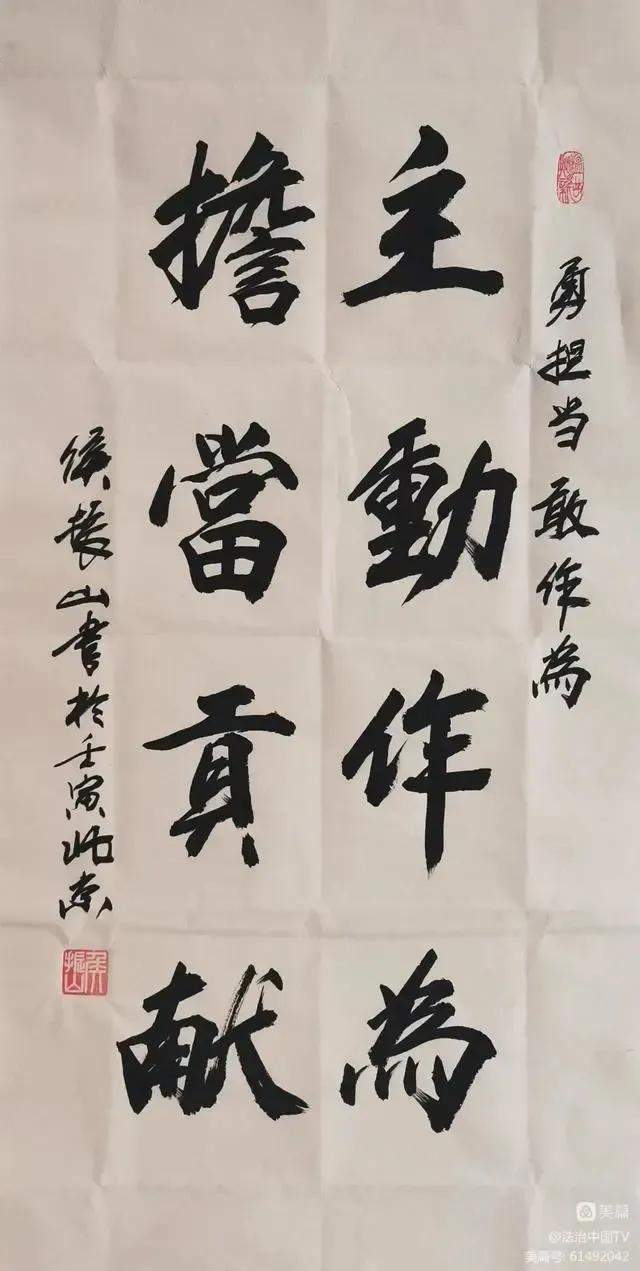 勇担当敢作為
主動作為
擔當貢献
侯振山書於壬寅北京
侯振山
美篇
@法治中国TV
美篇号: 61492042